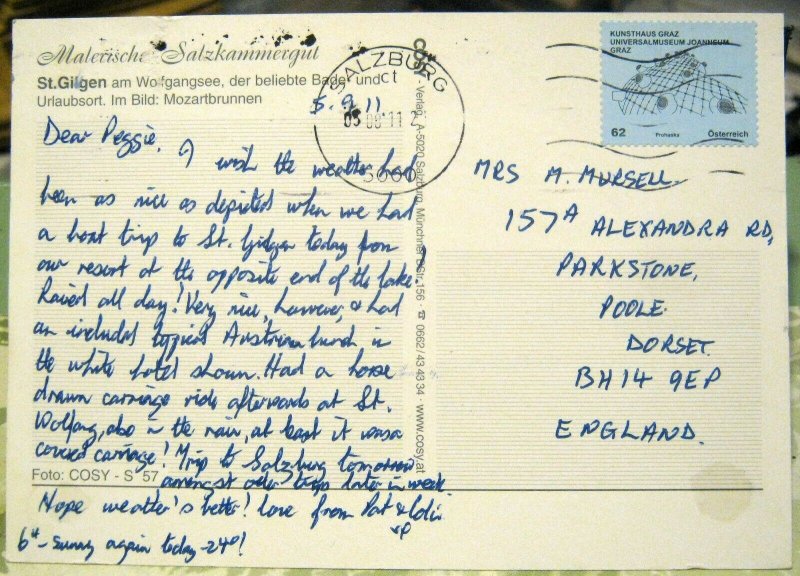 Malerische Salzkammergut
St.Gilgen am Wolfgangsee, der beliebte Bade- und
Urlaubsort. Im Bild: Mozartbrunnen
5.9.11
Dear Peggie,
I wish the weather had
been as nice as depicted when we had
a boat trip to St. Gilgen today from
our resort at the opposite end of the lake!
Rained all day! Very nice, however, & had
an included typical Austrian lunch in
the white hotel shown. Had a horse
drawn carriage ride afterwards at St.
Wolfgang, also in the rain, at least it was a
covered carriage! Trip to Salzburg tomorrow
amongst other trips later in week
Foto: COSY - S 57
Hope weather's better! Love from Pat & Colin
6th - Sunny again today - 24°!
COSY - Verlag, A-5020 Salzburg, Münchner B.Str. 156 · ☎ 0662/43 43 34 · www.cosy.at
SALZBURG
05 09 11
KUNSTHAUS GRAZ
UNIVERSALMUSEUM JOANNEUM
GRAZ
62 Prohaska Österreich
MRS M. MURSELL
157A ALEXANDRA RD,
PARKSTONE,
POOLE
DORSET.
BH14 9EP
ENGLAND.